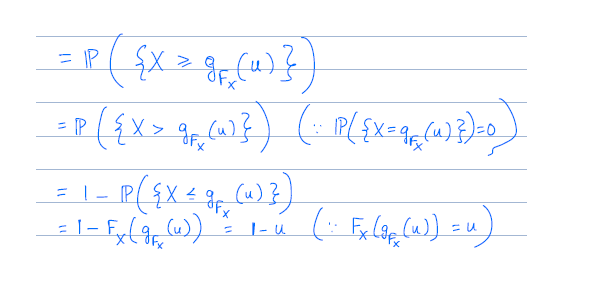 = ℙ ( {X ≥ g_{F_X}(u)} )
= ℙ ( {X > g_{F_X}(u)} ) (∵ ℙ({X = g_{F_X}(u)}) = 0)
= 1 − ℙ({X ≤ g_{F_X}(u)})
= 1 − F_X(g_{F_X}(u)) = 1 − u (∵ F_X(g_{F_X}(u)) = u)